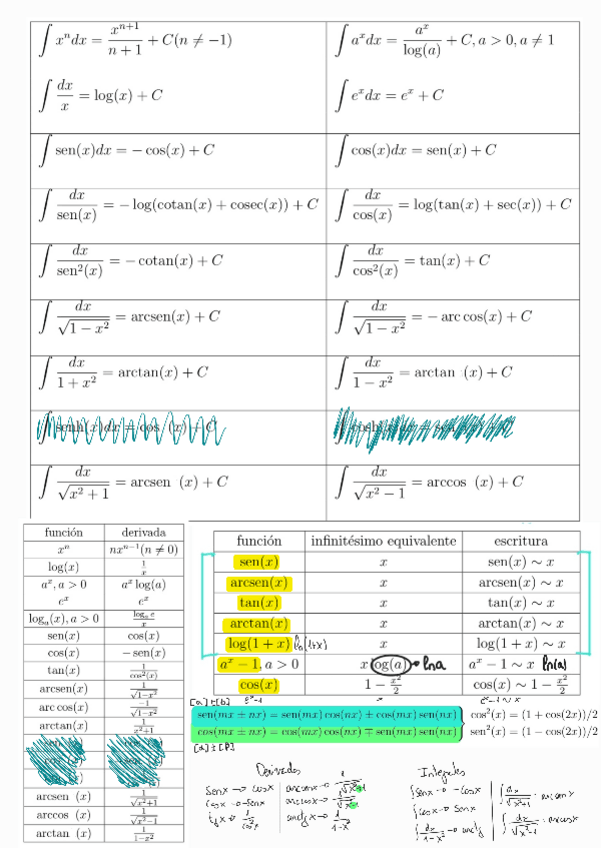 ∫ xⁿdx = xⁿ⁺¹/(n+1) + C(n ≠ −1)
∫ aˣdx = aˣ/log(a) + C, a > 0, a ≠ 1
∫ dx/x = log(x) + C
∫ eˣdx = eˣ + C
∫ sen(x)dx = − cos(x) + C
∫ cos(x)dx = sen(x) + C
∫ dx/sen(x) = − log(cotan(x) + cosec(x)) + C
∫ dx/cos(x) = log(tan(x) + sec(x)) + C
∫ dx/sen²(x) = − cotan(x) + C
∫ dx/cos²(x) = tan(x) + C
∫ dx/√(1 − x²) = arcsen(x) + C
∫ dx/√(1 − x²) = − arc cos(x) + C
∫ dx/(1 + x²) = arctan(x) + C
∫ dx/(1 − x²) = arctan (x) + C
∫ dx/√(x² + 1) = arcsen (x) + C
∫ dx/√(x² − 1) = arccos (x) + C
función derivada
xⁿ nxⁿ⁻¹(n ≠ 0)
log(x) 1/x
aˣ, a > 0 aˣ log(a)
eˣ eˣ
logₐ(x), a > 0 logₐ e/x
sen(x) cos(x)
cos(x) − sen(x)
tan(x) 1/cos²(x)
arcsen(x) 1/√(1−x²)
arc cos(x) −1/√(1−x²)
arctan(x) 1/(x²+1)
arcsen (x) 1/√(x²+1)
arccos (x) 1/√(x²−1)
arctan (x) 1/(1−x²)
función infinitésimo equivalente escritura
sen(x) x sen(x) ∼ x
arcsen(x) x arcsen(x) ∼ x
tan(x) x tan(x) ∼ x
arctan(x) x arctan(x) ∼ x
log(1 + x) ln(1+x) x log(1 + x) ∼ x
aˣ − 1, a > 0 x log(a) lna aˣ − 1 ∼ x ln(a)
cos(x) 1 − x²/2 cos(x) ∼ 1 − x²/2
eˣ-1 x eˣ-1 ∼ x
sen(mx ± nx) = sen(mx) cos(nx) ± cos(mx) sen(nx)
cos²(x) = (1 + cos(2x))/2
cos(mx ± nx) = cos(mx) cos(nx) ∓ sen(mx) sen(nx)
sen²(x) = (1 − cos(2x))/2
Derivadas
Senx → cosx
Cosx → -Senx
tgx → 1/cos²x
Integrales
∫senx → -cosx
∫cosx → Senx